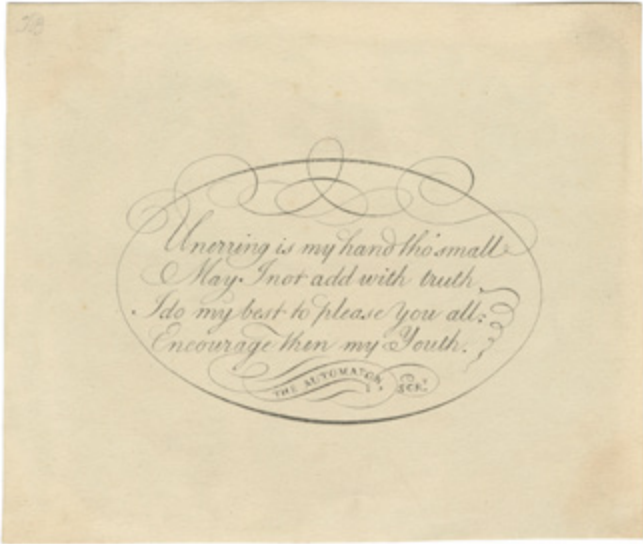 Unerring is my hand tho' small
May I not add with truth
I do my best to please you all;
Encourage then my Youth.
THE AUTOMATON,